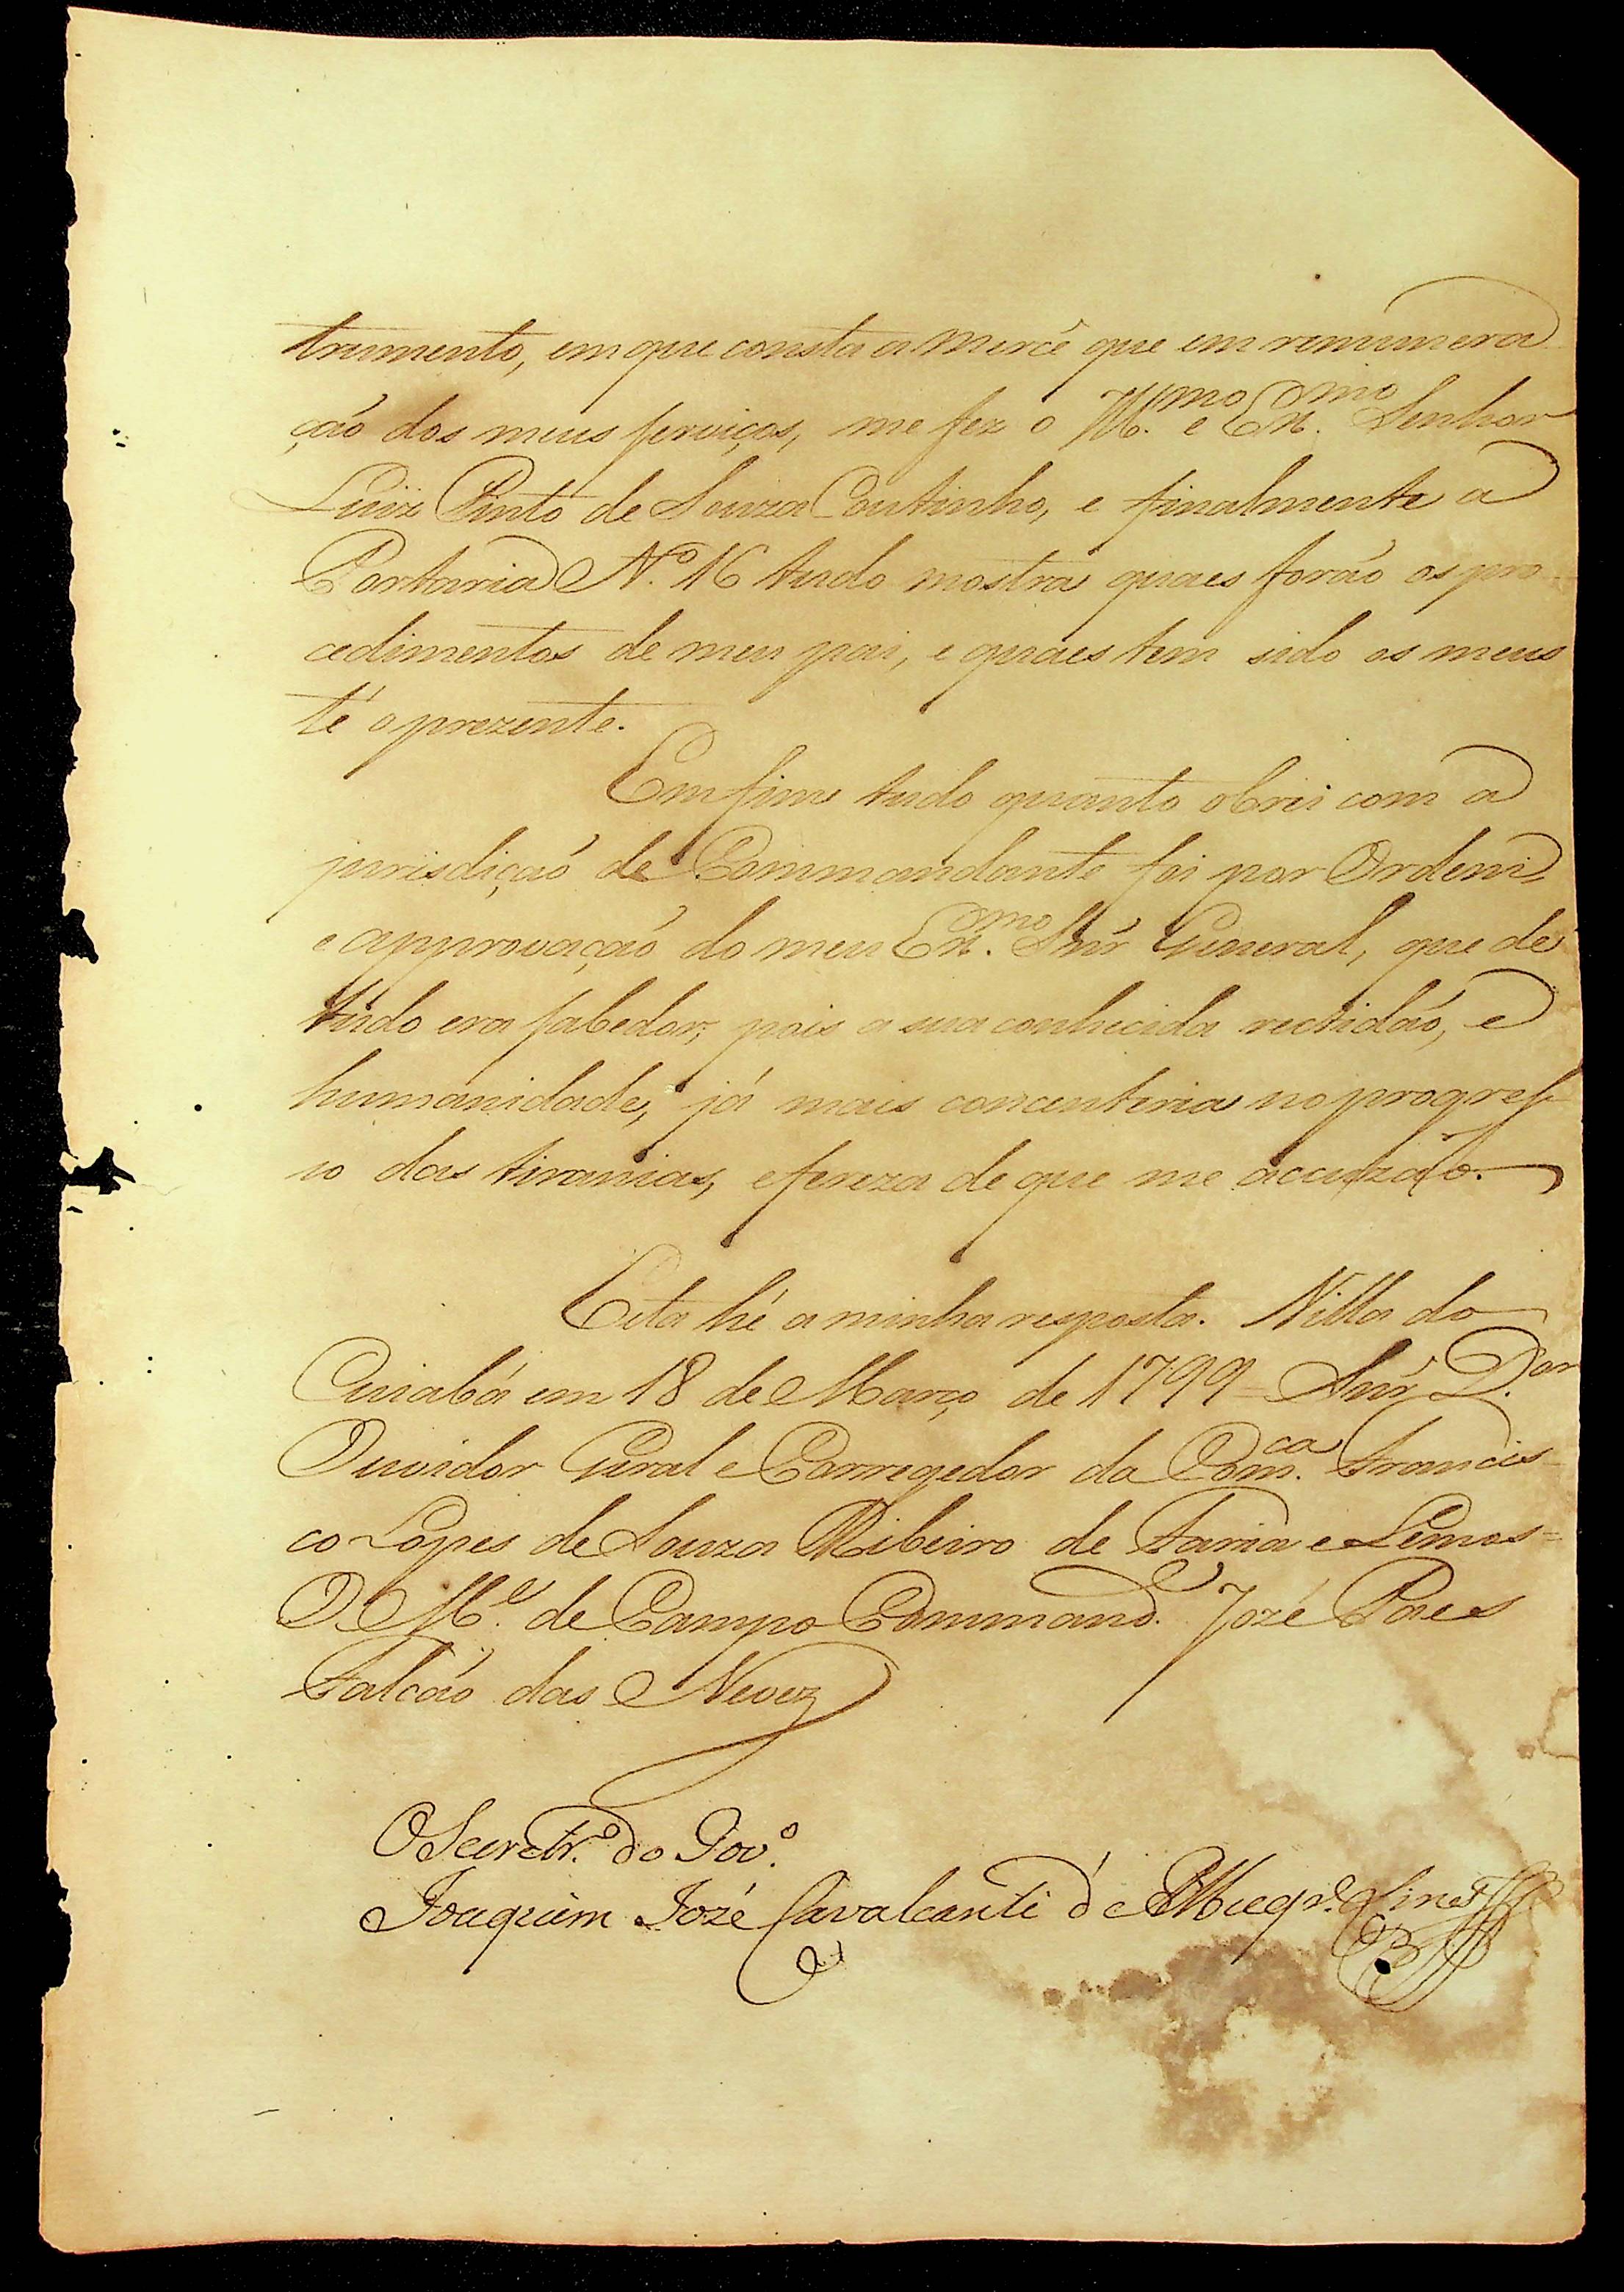 trumento, em que consta a mercê que em remunera
ção dos meus serviços, me fez o Ill.mo e Ex.mo Senhor
Luiz Pinto de Souza Coutinho, e finalmente a
Portaria N.º 16 tudo mostra quaes forão os pro-
cedimentos de meu pai, e quaes tem sido os meus
té o prezente.
Em fim tudo quanto obrei com a
jurisdição de Commandante foi por Ordem,
e approvação do meu Ex.mo Snr General, que de
tudo era sabedor, pois a sua conhecida rectidão, e
humanidade, já mais concenteria no progres-
so das tiranias, e fereza de que me acuzão.
Esta hé a minha resposta. Villa do
Cuiabá em 18 de Março de 1799 = Snr D.or
Ouvidor Geral e Corregedor da Com.ca Francis-
co Lopes de Souza Ribeiro de Faria e Lemos =
O M.e de Campo Command.e Jozé Paes
Falcão das Nevez
O Secretr.º do Gov.º
Joaquim Jozé Cavalcanti d'Albuqr.e Lins